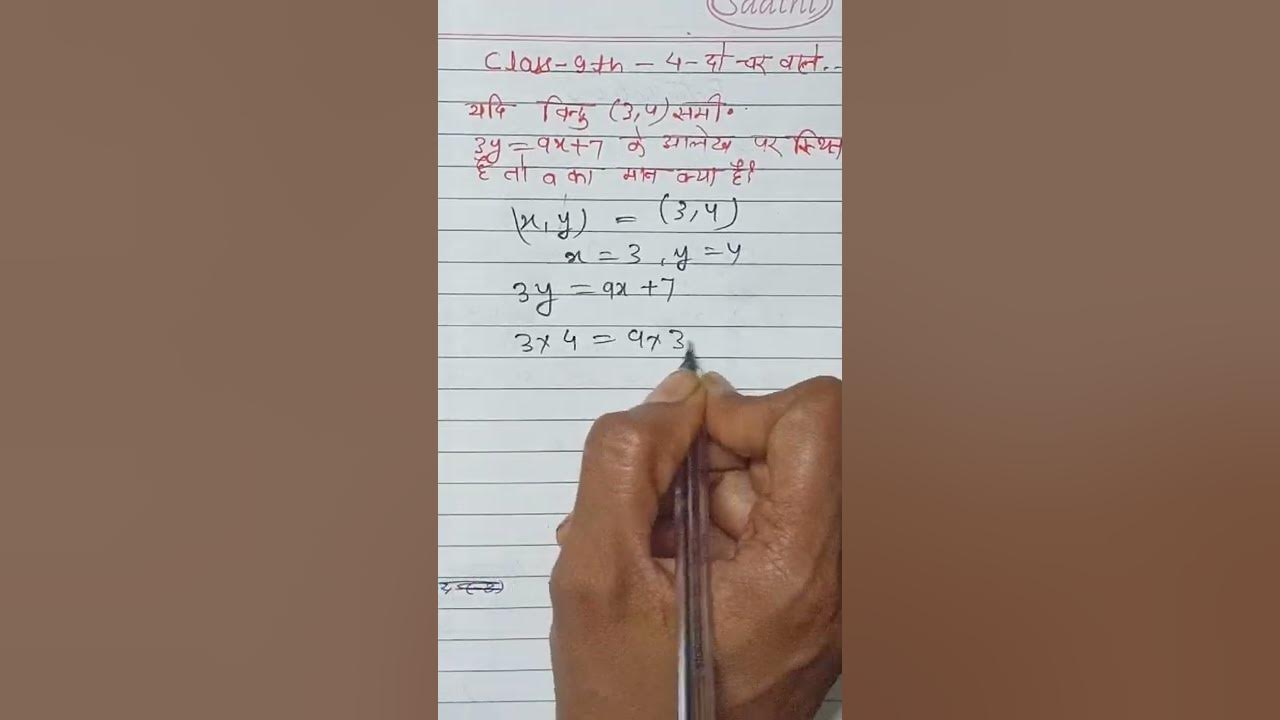 Saathi
Class-9th-4-दो चर वाले..
यदि बिन्दु (3,4) समी॰
3y=ax+7 के आलेख पर स्थित
है तो a का मान क्या है।
(x,y) = (3,4)
x=3, y=4
3y=ax+7
3×4=a×3